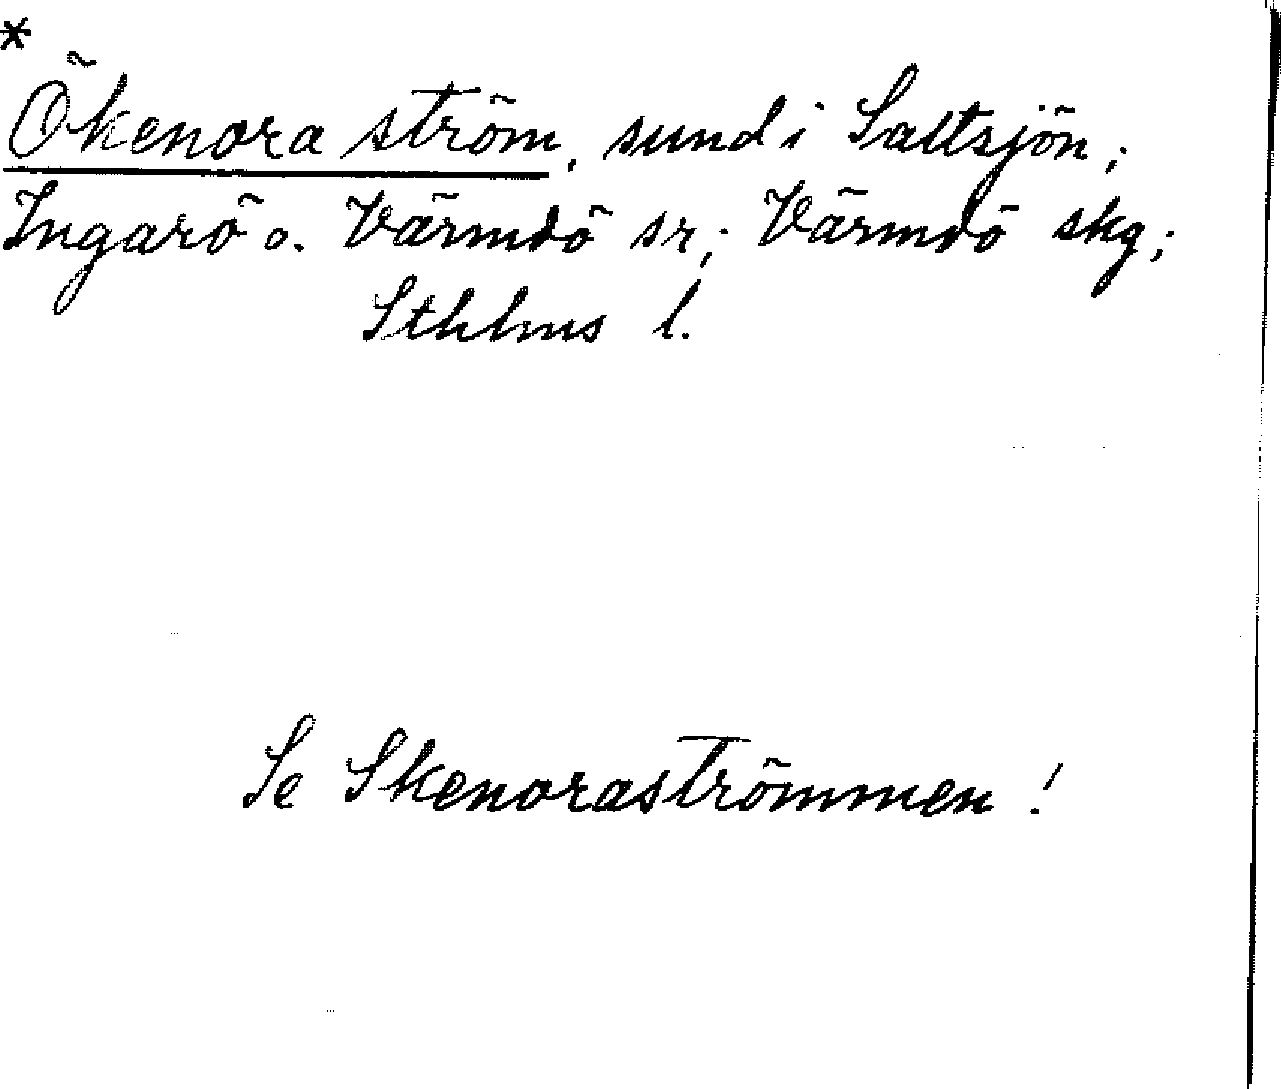 *
Ökenora ström, sund i Saltsjön;
Ingarö o. Värmdö sr; Värmdö skg;
Sthlms l.
Se Skenoraströmmen!